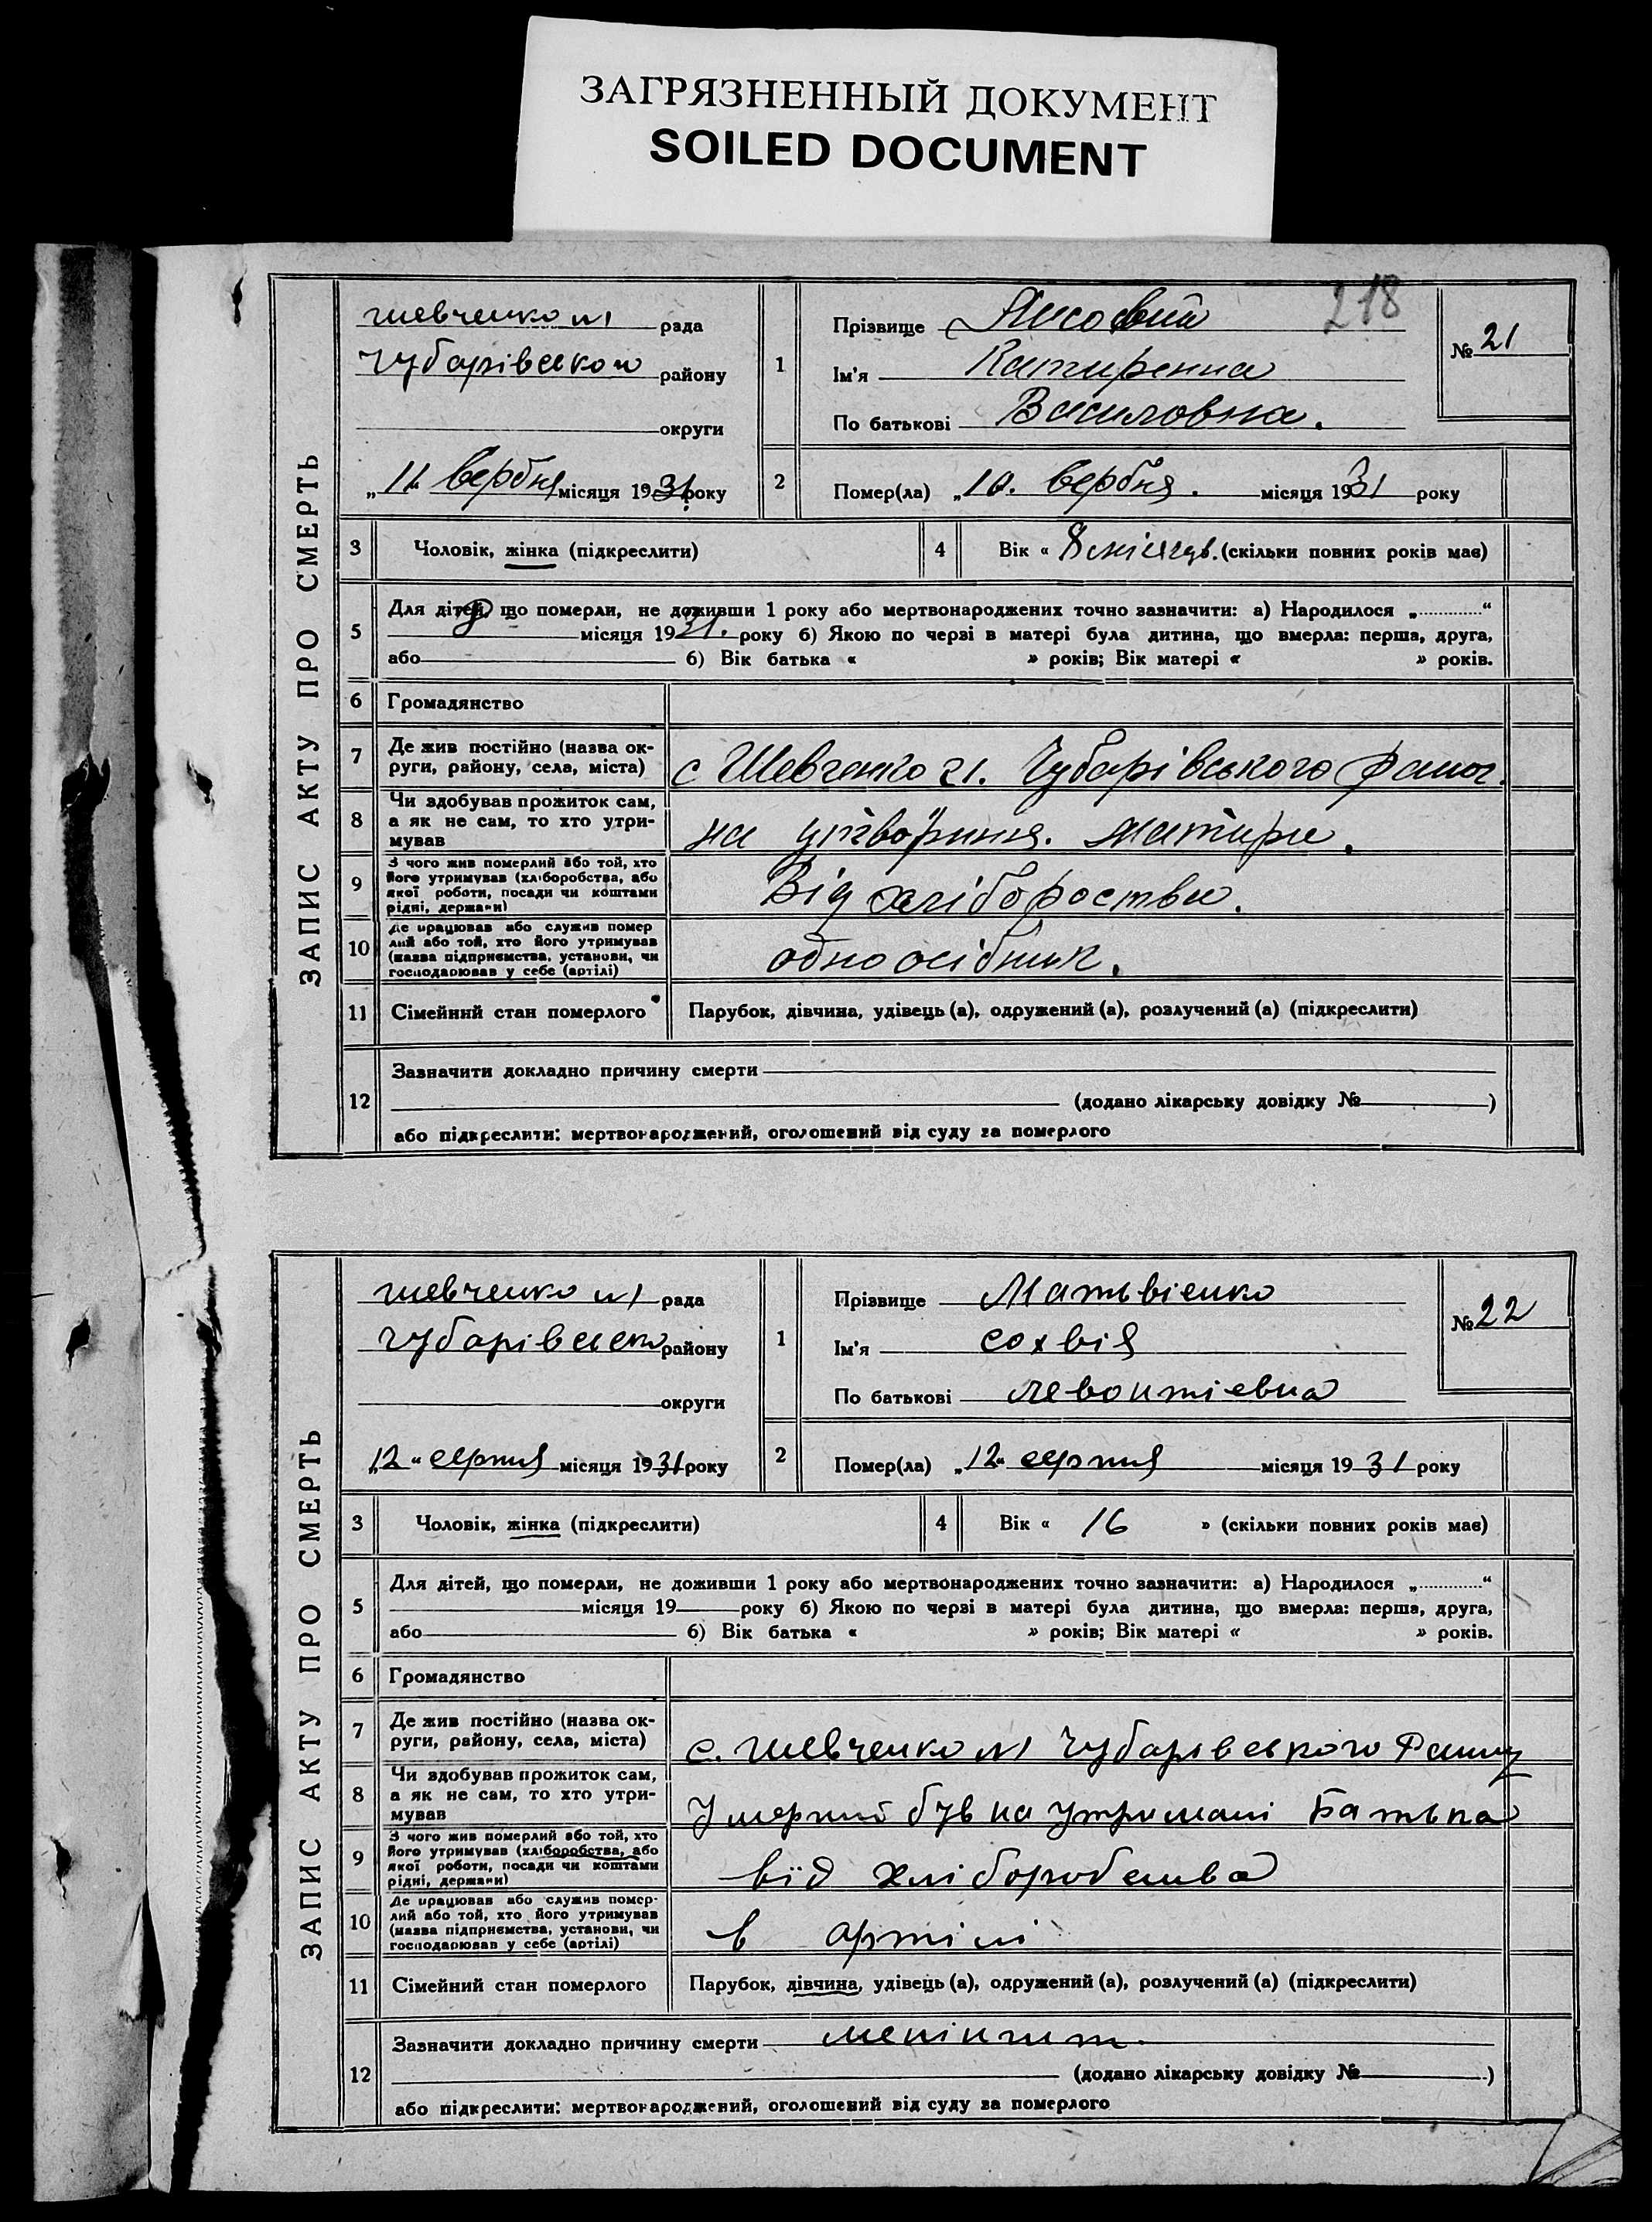 ЗАГРЯЗНЕННЫЙ ДОКУМЕНТ
SOILED DOCUMENT
218
ЗАПИС АКТУ ПРО СМЕРТЬ
Шевченко №1 рада
Чубарівської району
округи
„11 вербня місяця 1931 року
1 Прізвище
Ім'я Катиренна
По батькові Василовна.
№ 21
2 Помер(ла) „10. вербня. місяця 1931 року
3 Чоловік, жінка (підкреслити)
4 Вік « 8 місяцув. (скільки повних років має)
5 Для дітей, що померли, не доживши 1 року або мертвонароджених точно зазначити: а) Народилося „............“
місяця 1931. року б) Якою по черзі в матері була дитина, що вмерла: перша, друга,
або б) Вік батька « » років; Вік матері « » років.
6 Громадянство
7 Де жив постійно (назва ок-
руги, району, села, міста)
с Шевченко №1. Чубарівського
8 Чи здобував прожиток сам,
а як не сам, то хто утри-
мував
на матири.
9 З чого жив померлий або той, хто
його утримував (хліборобства, або
якої роботи, посади чи коштами
рідні, держави)
Від
10 Де працював або служив помер
лий або той, хто його утримував
(назва підприємства, установи, чи
господарював у себе (артілі)
одноосібник.
11 Сімейний стан померлого Парубок, дівчина, удівець (а), одружений (а), розлучений (а) (підкреслити)
12 Зазначити докладно причину смерти
(додано лікарську довідку № )
або підкреслити: мертвонароджений, оголошений від суду за померлого
ЗАПИС АКТУ ПРО СМЕРТЬ
Шевченко №1 рада
Чубарівсько району
округи
„12“ серпня місяця 1931 року
1 Прізвище Матьвіенко
Ім'я сохвія
По батькові левонтіевна
№ 22
2 Помер(ла) „12“ серпня місяця 1931 року
3 Чоловік, жінка (підкреслити)
4 Вік « 16 » (скільки повних років має)
5 Для дітей, що померли, не доживши 1 року або мертвонароджених точно зазначити: а) Народилося „............“
місяця 19 року б) Якою по черзі в матері була дитина, що вмерла: перша, друга,
або б) Вік батька « » років; Вік матері « » років.
6 Громадянство
7 Де жив постійно (назва ок-
руги, району, села, міста)
с. Шевченко №1 Чубарівського Раину
8 Чи здобував прожиток сам,
а як не сам, то хто утри-
мував
Умерший був на утримані Батька
9 З чого жив померлий або той, хто
його утримував (хліборобства, або
якої роботи, посади чи коштами
рідні, держави)
від хліборобства
10 Де працював або служив помер-
лий або той, хто його утримував
(назва підприємства, установи, чи
господарював у себе (артілі)
в артілі
11 Сімейний стан померлого Парубок, дівчина, удівець (а), одружений (а), розлучений (а) (підкреслити)
12 Зазначити докладно причину смерти менінгит.
(додано лікарську довідку № )
або підкреслити: мертвонароджений, оголошений від суду за померлого